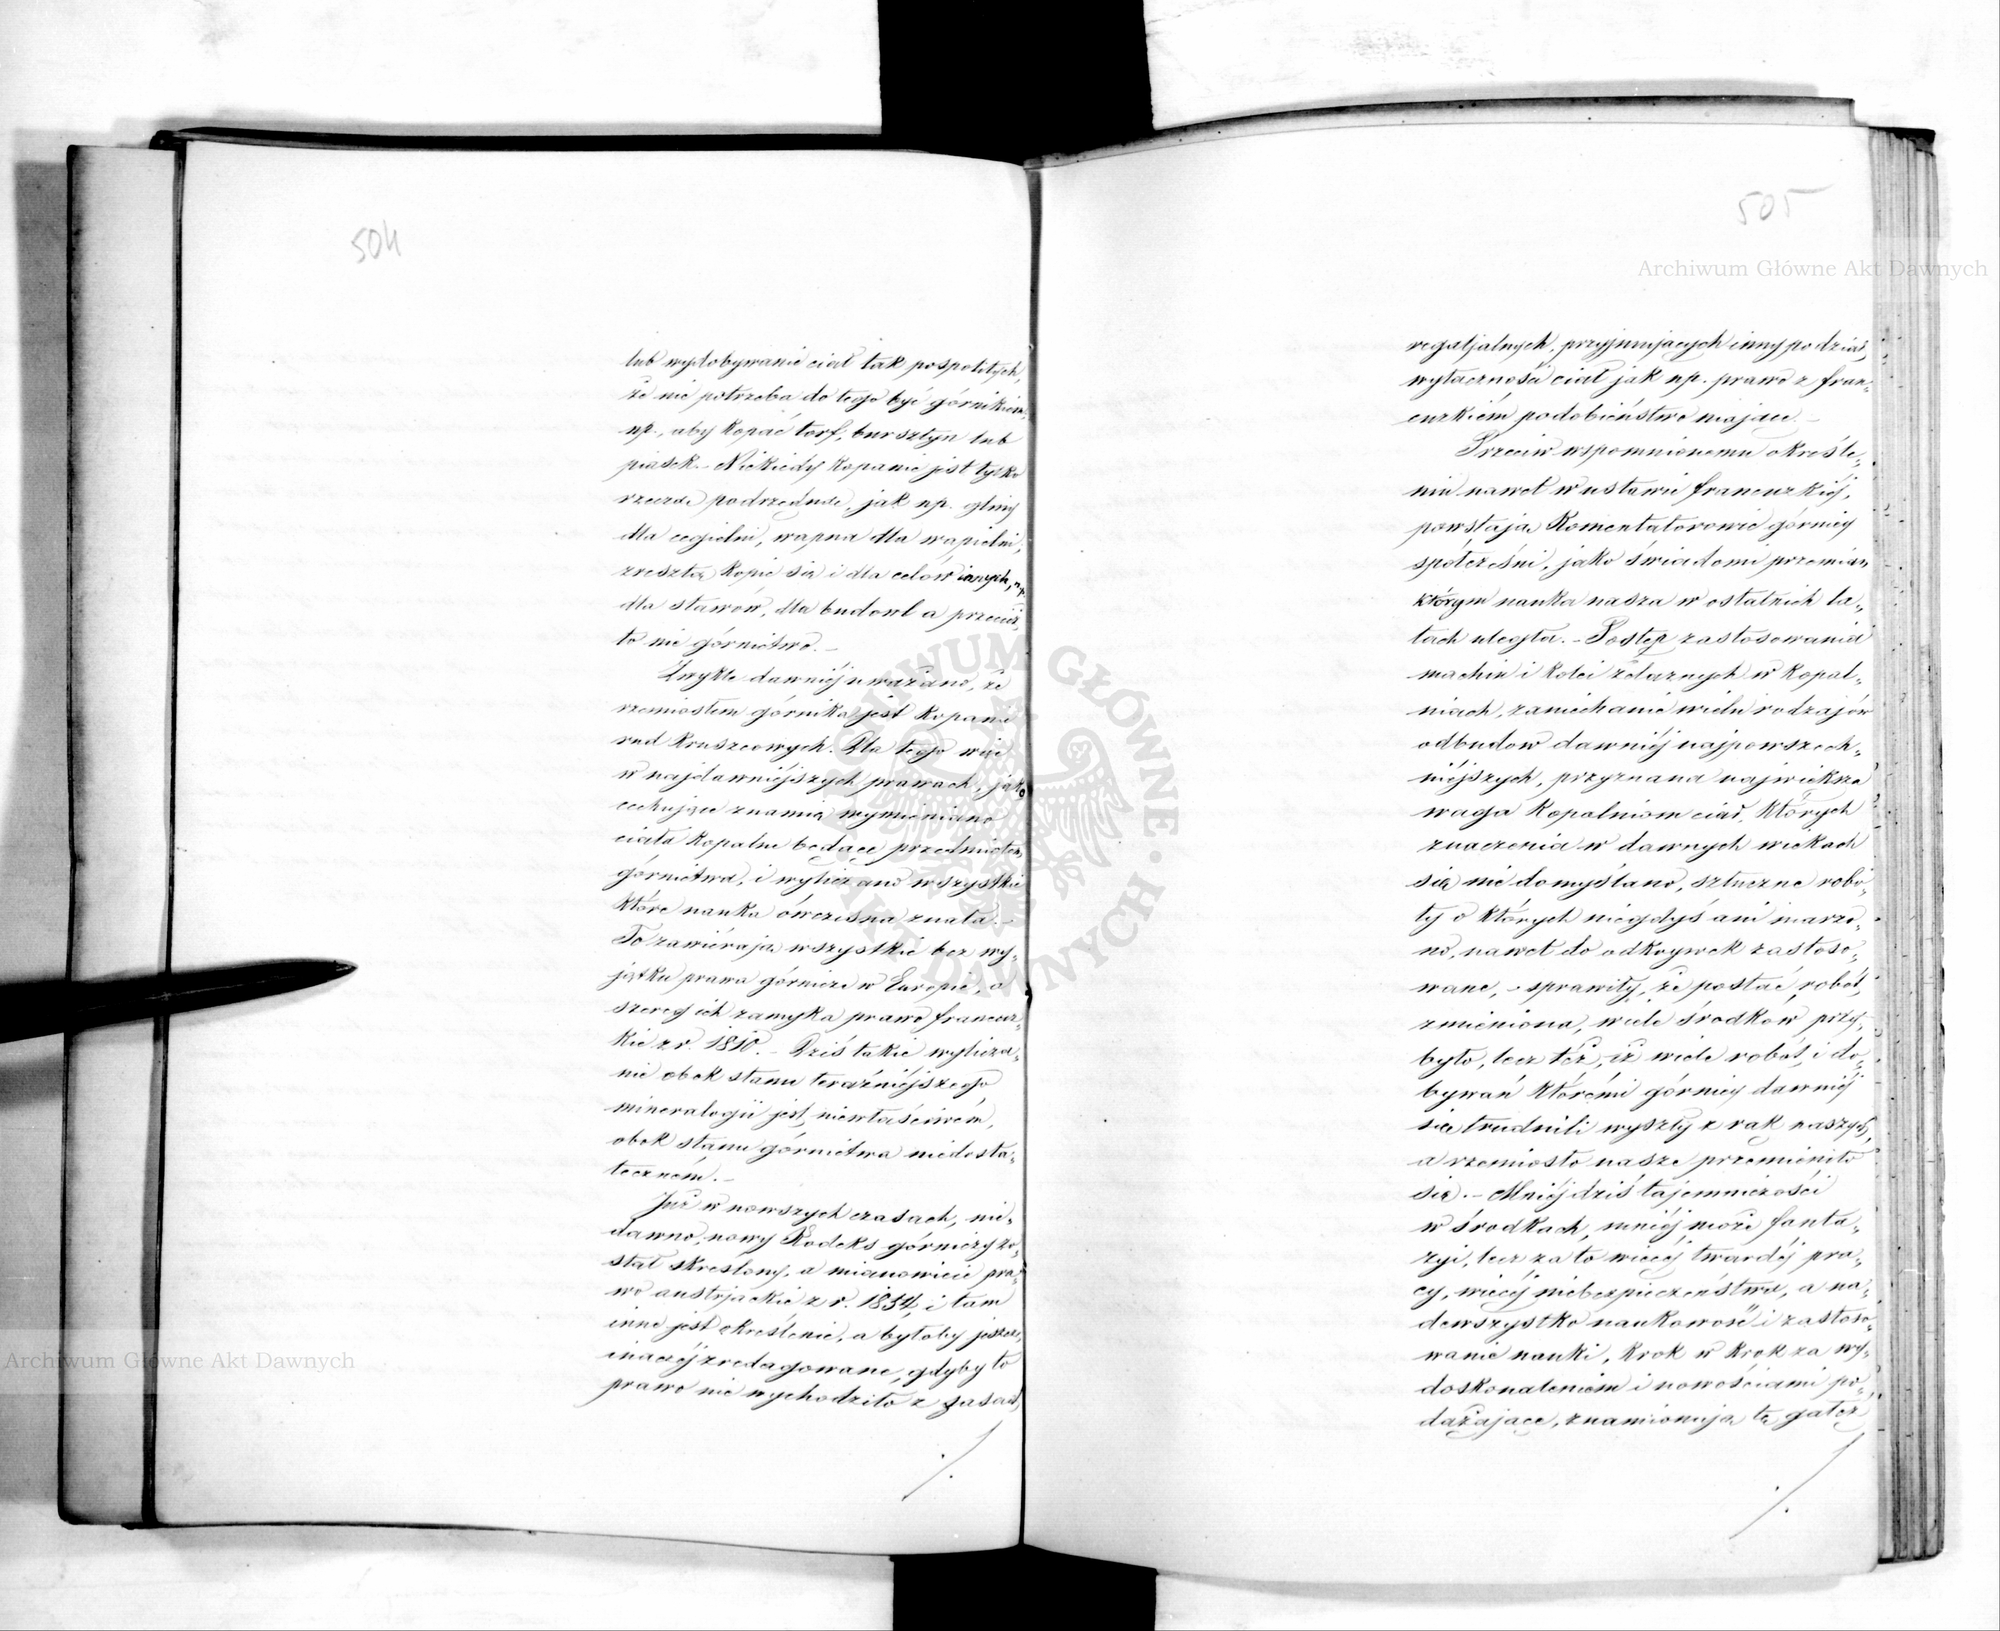 504
lub wydobywanie ciał tak pospolitych,
że nie potrzeba do tego być górnikiem,
np., aby kopać torf, bursztyn lub
piasek. – Niekiedy kopanie jest tylko
rzeczą podrzędną, jak np. gliny
dla cegielni, wapna dla wapielni,
zresztą kopie się i dla celów innych, np.
dla stawów, dla budowl a przecież
to nie górnictwo. –
Zwykle dawniéj uważano, że
rzemiosłem górnika jest kopanie
rud kruszcowych. Dla tego więc
w najdawniéjszych prawach, jako
cechujące znamię wymieniano
ciała kopalne będące przedmiotem
górnictwa, i wyliczano wszystkie
które nauka ówczesna znała. –
To zawiérają wszystkie bez wy-
jątku prawa górnicze w Europie, a
szereg ich zamyka prawo francuz-
kie z r. 1810. – Dziś takie wylicza-
nie obok stanu teraźniéjszego
mineralogii jest niewłaściwém,
obok stanu górnictwa niedosta-
teczném. –
Już w nowszych czasach, nie-
dawno, nowy Kodeks górniczy zo-
stał skreślony, a mianowicie pra-
wo austrjackie z r. 1854, i tam
inne jest określenie, a byłoby jeszcze
inaczéj zredagowane, gdyby to
prawo nie wychodziło z zasad
./.
505
Archiwum Główne Akt Dawnych
regaljalnych, przyjmujących inny podział
wyłączności ciał jak np. prawo z fran-
cuzkiém podobieństwo mające. –
Przeciw wspomnionemu określe-
niu nawet w ustawie francuzkiéj,
powstają Komentatorowie górnicy
spółcześni, jako świadomi przemian,
którym nauka nasza w ostatnich la-
tach uległa. – Postęp zastosowania
machin i kolei żelaznych w kopal-
niach, zaniechanie wielu rodzajów
odbudow dawniéj najpowszech-
niéjszych, przyznana największa
waga kopalniom ciał, których
znaczenia w dawnych wiekach
się nie domyślano, sztuczne robo-
ty o których niegdyś ani marzo-
no, nawet do odkrywek zastoso-
wane, – sprawiły, że postać robót,
zmieniona, wiele środków przy-
było, lecz téż, iż wiele robót i do-
bywań któremi górnicy dawniéj
się trudnili wyszły z rąk naszych,
a rzemiosło nasze przemieniło
się. – Mniéj dziś tajemniczości
w środkach, mniéj może fanta-
zyi, lecz za to więcéj twardéj pra-
cy, więcéj niebezpieczeństwa, a na-
dewszystko naukowość i zastoso-
wanie nauki, krok w krok za wy-
doskonaleniem i nowościami po-
dążające, znamionują tę gałęź
./.
Archiwum Główne Akt Dawnych
ARCHIWUM GŁÓWNE AKT DAWNYCH